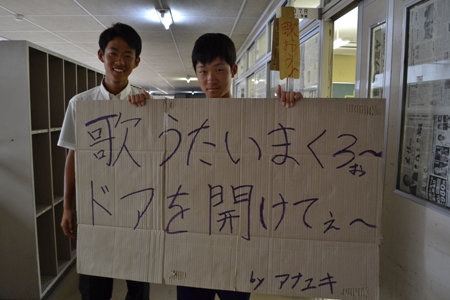 歌うたいまくろぉ〜
ドアを開けてぇ〜
by アナユキ